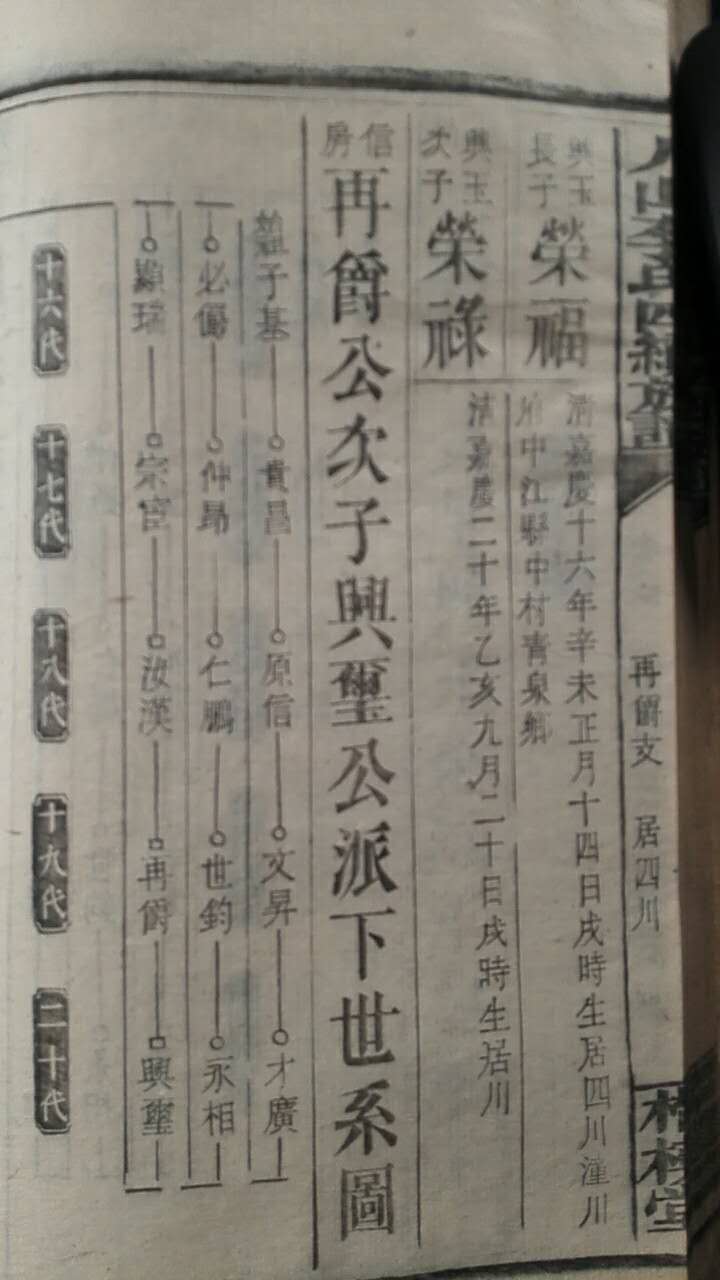 李氏四編族譜
再爵支 居四川
興玉長子 榮福
清嘉慶十六年辛未正月十四日戌時生居四川潼川
府中江縣中村青泉鄉
興玉次子 榮祿
清嘉慶二十年乙亥九月二十日戌時生居川
信房 再爵公次子興璽公派下世系圖
子基 貴昌 原信 文昇 才廣
必儒 仲昂 仁鵬 世鈞 永相
顯瑞 宗官 汝漢 再爵 興璽
十六代 十七代 十八代 十九代 二十代